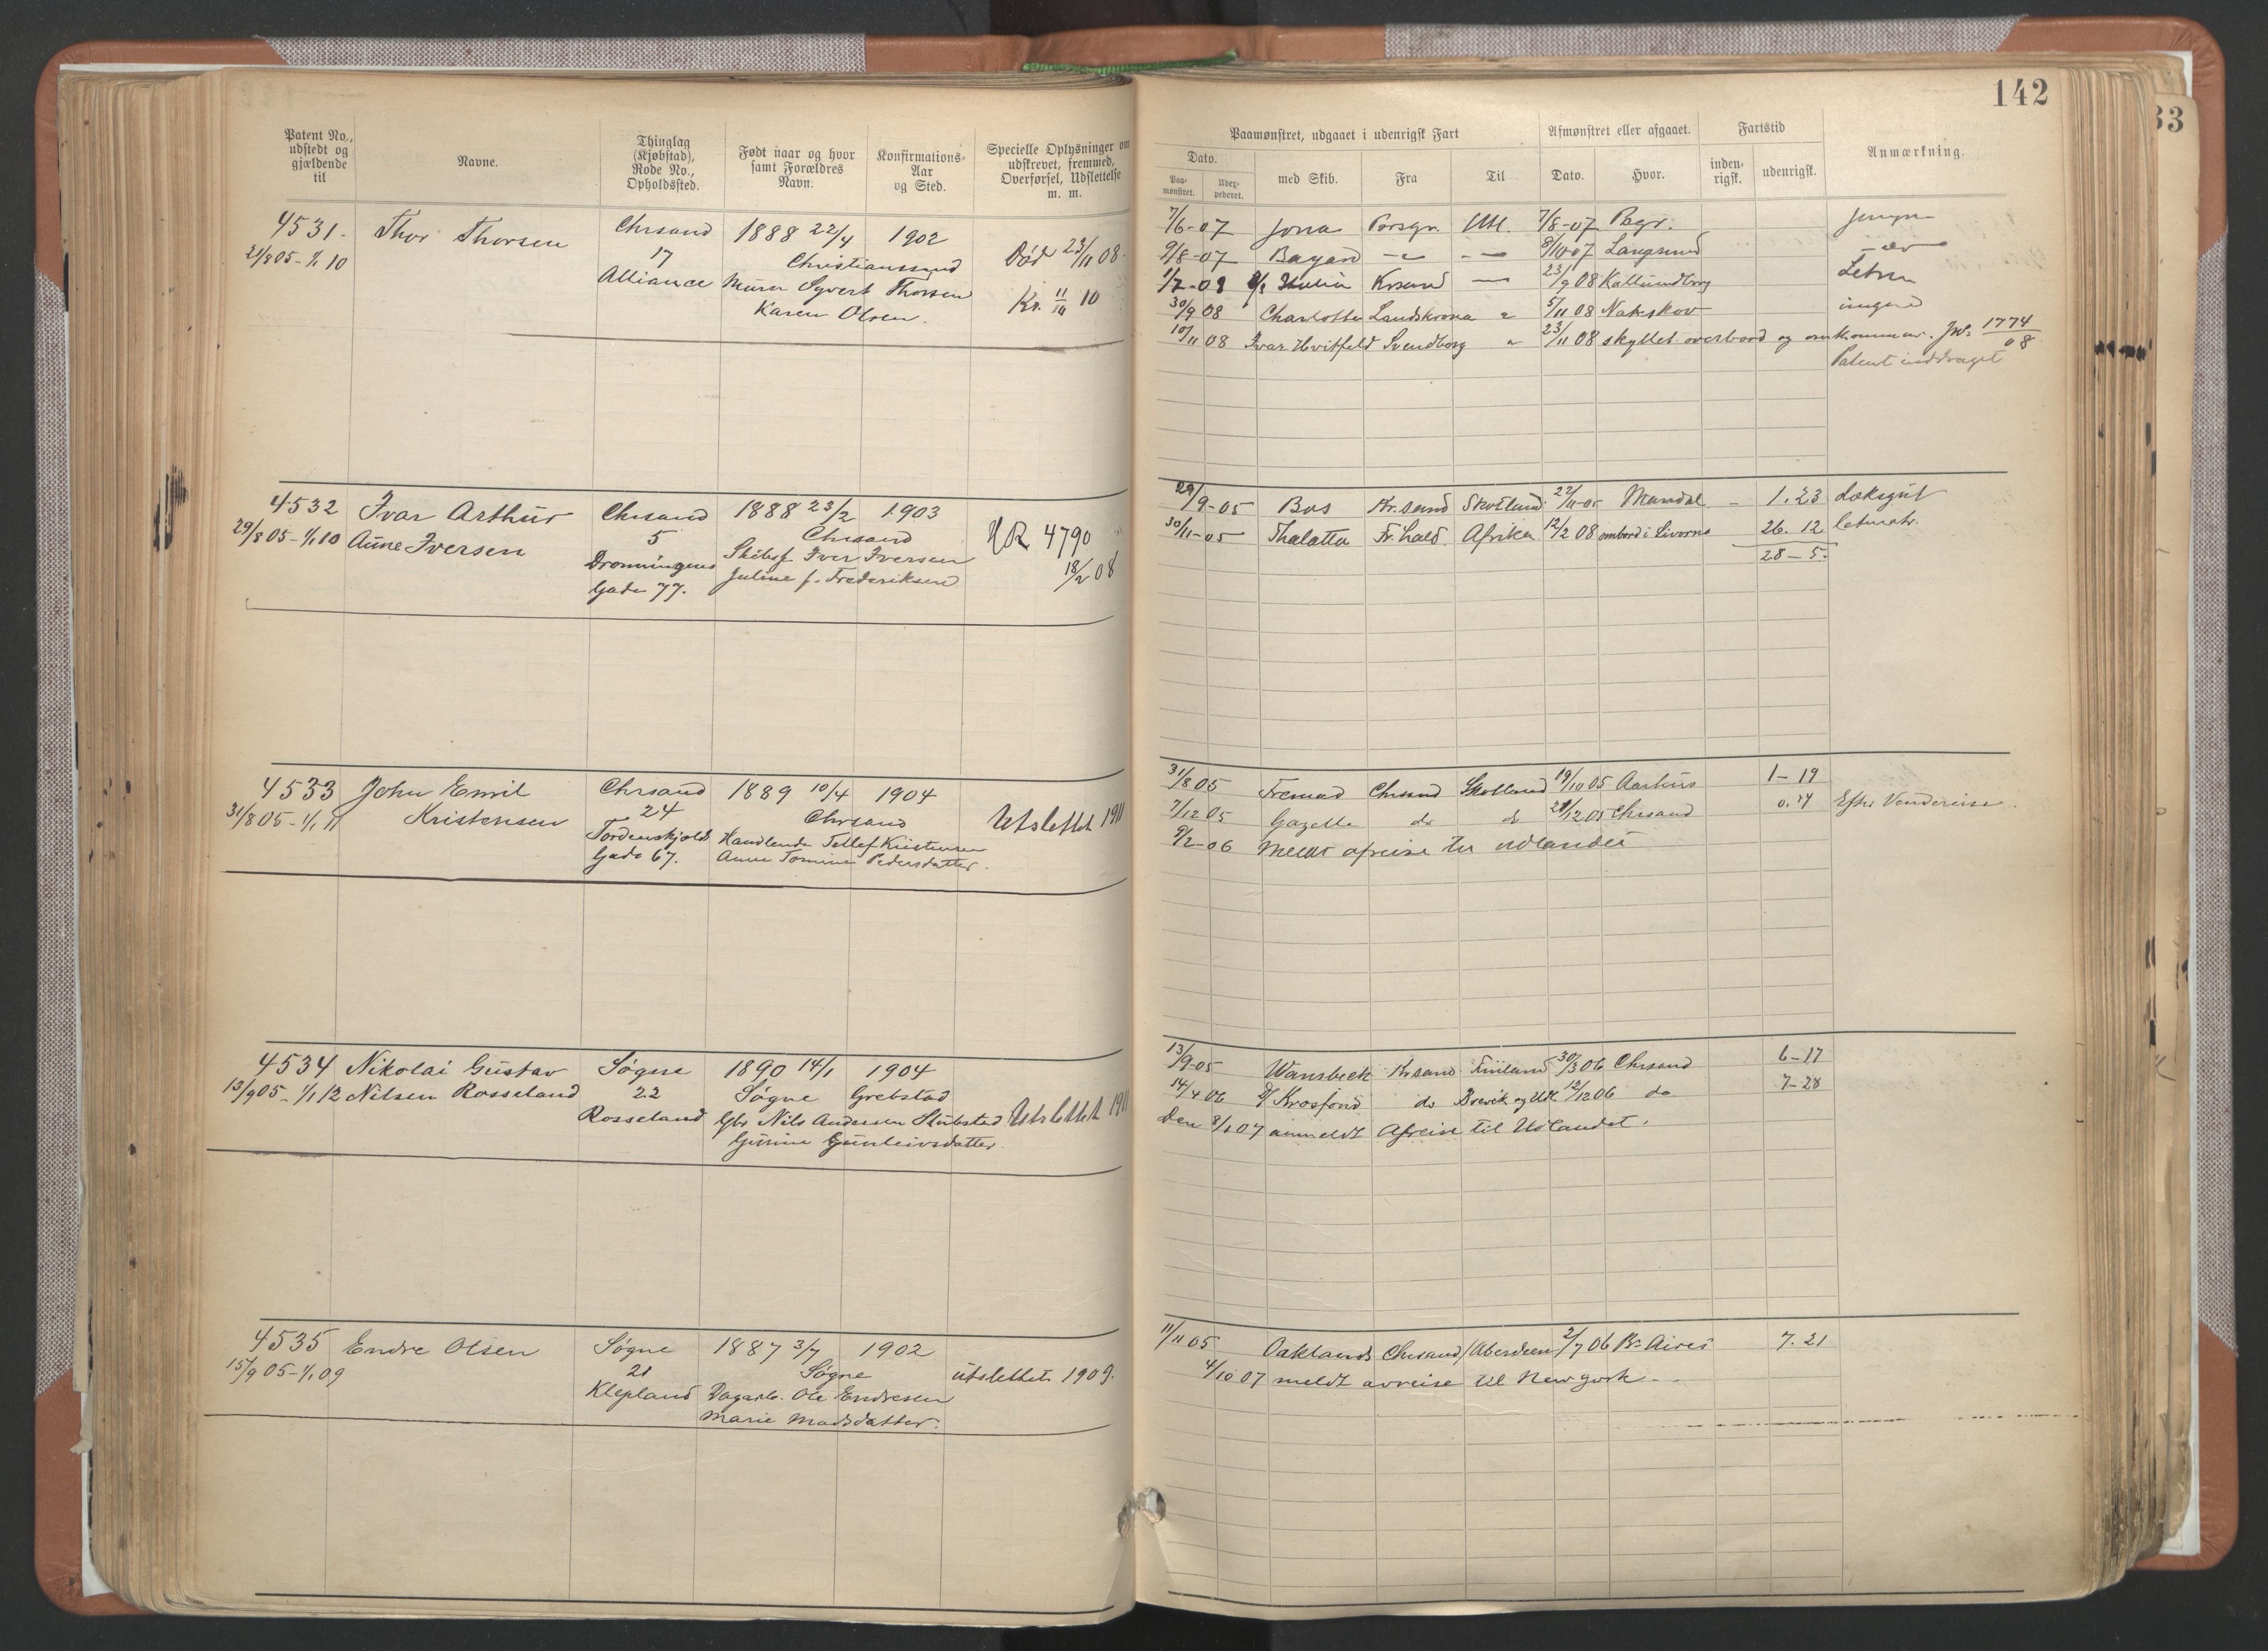 142
33
Patent No., udstedt og gjældende til
Navne.
Thinglag (Kjøbstad), Rode No., Opholdssted.
Født naar og hvor samt Forældres Navn.
Konfirmations-Aar og Sted.
Specielle Oplysninger om udskrevet, fremmed, Overførsel, Udslettelse m. m.
Paamønstret, udgaaet i udenrigsk Fart
Afmønstret eller afgaaet.
Fartstid
Anmærkning.
Dato.
Paa-mønstret.
med Skib.
Fra
Til
Dato.
Hvor.
inden-rigsk.
udenrigsk.
4531. Thor Thorsen Chrsand 1888 22/4 1902 Død 23/11 08.
21/8 05 - 1/1 10 17 Christianssand
Alliance Murer Syvert Thorsen Kr. 11/11 10
Karen Olsen.
7/6-07 Jona Porsgr. Utl. 7/8-07 Pogr.
9/8-07 Bayard 8/10-07 Langesund
1/7-08 Krsand 23/9 08 Kallundborg Letm
30/9 08 Charlotte Landskrona 5/11 08 Nakskov
10/11 08 Ivar Hvitfeld Svendborg 23/11 08 skyllet overbord og omkommer. JNo 1774/08
Patent inddraget
4532 Ivar Arthur Chrsand 1888 23/2 1903
29/8 05 - 1/1 10 Aune Iversen 5 Chrsand HR 4790
Dronningens Skibsf. Iver Iversen 18/2 08
Gade 77. Juline f. Frederiksen
29/9-05 Bos Kr.sand Skotland 22/11-05 Mandal - 1.23 Doksgut
30/11-05 Thalatta Fr.hald Afrika 12/2 08 ombord i Livorno 26.12 letmatr.
28-5.
4533 John Emil Chrsand 1889 10/4 1904
31/8 05 - 1/1 11 Kristensen 24 Chrsand Utslettet 1911
Tordenskjolds Handlende Tellef Kristensen
Gade 67. Anne Tomine Pedersdatter.
31/8 05 Fremad Chrsand Skotland 19/10 05 Aarhus 1-19
7/12 05 Gazelle do do 21/12 05 Chrsand Efter Vendereise.
9/2-06 Meldt afreise til udlandet
4534 Nikolai Gustav Søgne 1890 14/1 1904
13/9 05 - 1/1 12 Nilsen Rosseland 22 Søgne Grebstad
Rosseland Gbr Nils Andersen Stubstad Utslettet 1911
Gurine Gunleivsdatter.
13/9-05 Wansbeck Krsand Finland 30/3 06 Chrsand 6-17
14/4 06 D/S Krosfond do Brevik og Utl 12/12 06 do 7-28
Den 8/1 07 anmeldt Afreise til Udlandet.
4535 Endre Olsen Søgne 1887 3/7 1902
15/9 05 - 1/1 09 21 Søgne utslettet 1909.
Klepland Dagarb. Ole Endresen
Marie Madsdatter.
11/11 05 Oaklands Chrsand/Aberdeen 2/7 06 Bs Aires 7.21
4/10 07 meldt avreise til New york